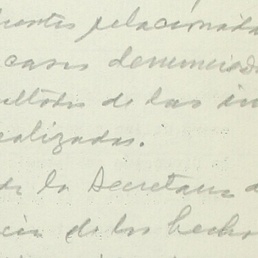 relacionada
casos denunciad
ultados de las in
ealizadas.
de la Secretaria d
cia de los hecho